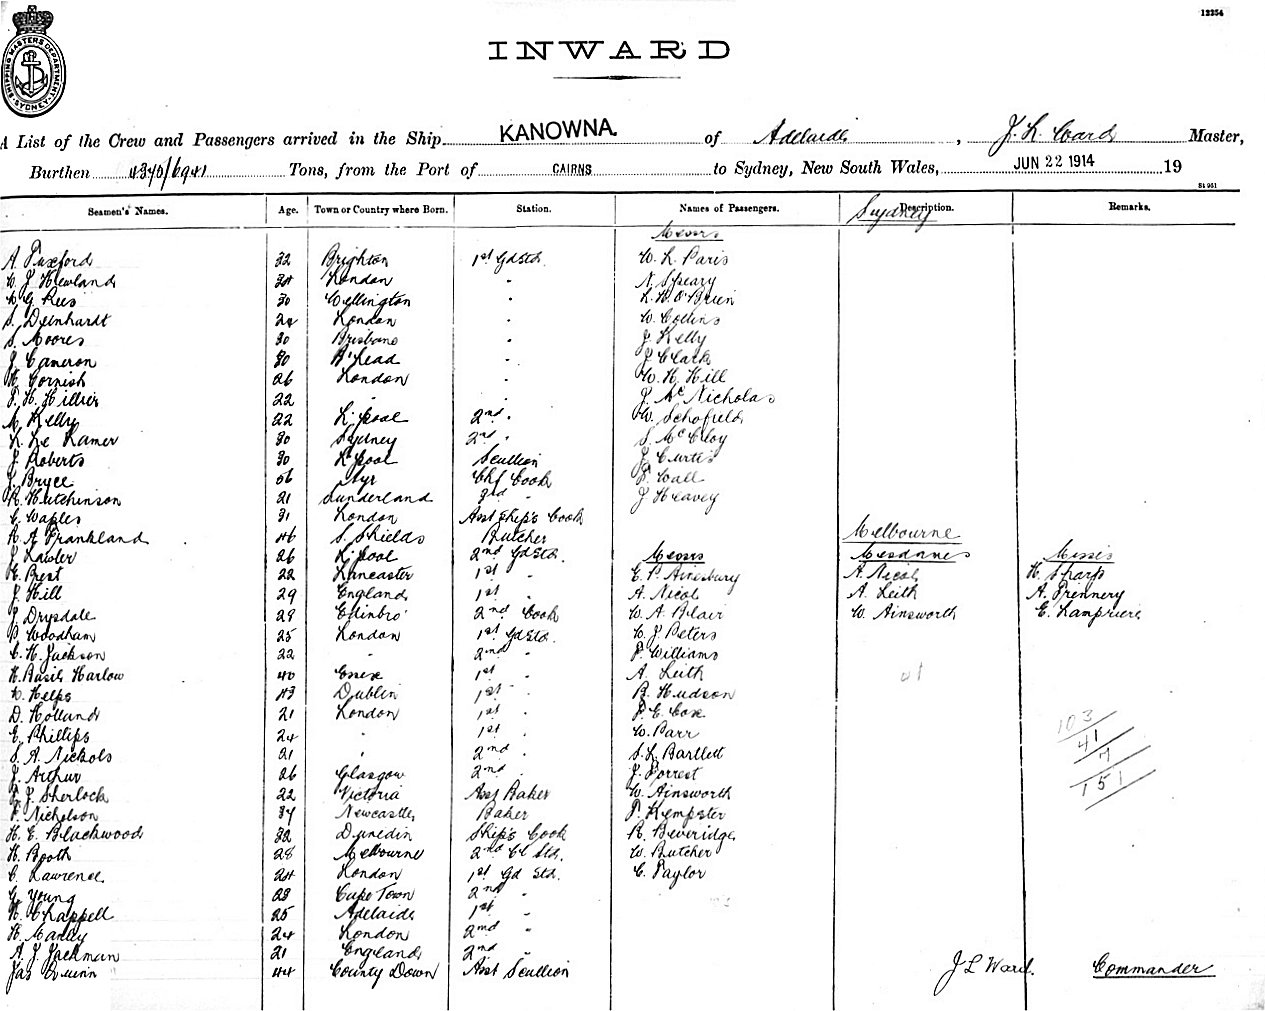 12254
SHIPPING MASTERS DEPARTMENT SYDNEY
INWARD
A List of the Crew and Passengers arrived in the Ship KANOWNA. of Adelaide, J. L. Ward Master,
Burthen 4340/6941 Tons, from the Port of CAIRNS to Sydney, New South Wales, JUN 22 1914 19
St 951
Seamen's Names. Age. Town or Country where Born. Station. Names of Passengers. Description. Remarks.
Sydney
Messrs
A. Puxford 32 Brighton 1st Gd Std. W. L. Paris
W. J. Hewland 34 London " N. Speary
W. G. Rees 30 Wellington " L. H. O'Brien
S. Deinhardt 24 London " W. Collins
S. Moores 30 Brisbane " J. Kelly
J. Cameron 30 B'head " J. Clark
H. Cornish 26 London " W. H. Hill
F. H. Hillier 22 " " J. McNicholas
M. Kelly 22 L'pool 2nd " W. Schofield
L. Le Lamer 30 Sydney 2nd " S. McCloy
J. Roberts 30 L'pool Scullion J. Curtis
J. Bryce 56 Ayr Chf Cook P. Wall
R. Hutchinson 21 Sunderland 3rd " J. Heavey
C. Waples 31 London Asst Ship's Cook
A. A. Frankland 46 S. Shields Butcher Melbourne
J. Lawler 26 L'pool 2nd Gd Std. Messrs Mesdames Misses
H. Brest 22 Lancaster 1st " E. P. Ainsbury A. Nicol H. Sharp
J. Hill 29 England 1st " A. Nicol A. Leith A. Trennery
J. Drysdale 28 Edinbro' 2nd Cook W. A. Blair W. Ainsworth E. Lampriere
P. Woodham 25 London 1st Gd Std. W. J. Peters
C. H. Jackson 22 " 2nd " P. Williams
H. Basil Harlow 40 Essex 1st " A. Leith
W. Helps 43 Dublin 1st " R. Hudson
D. Holland 21 London 1st " P. E. Cox
E. Phillips 24 " 1st " W. Parr
S. A. Nickols 21 " 2nd " S. L. Bartlett
J. Arthur 26 Glasgow 2nd " J. Forrest
P. J. Sherlock 22 Victoria Asst Baker W. Ainsworth
P. Nicholson 34 Newcastle Baker P. Kempster
H. E. Blackwood 32 Dunedin Ship's Cook R. Beveridge
H. Booth 28 Melbourne 2nd Cl Std. W. Butcher
C. Lawrence 24 London 1st Gd Std. C. Taylor
G. Young 23 Cape Town 2nd "
H. Chappell 25 Adelaide 1st "
H. Manley 24 London 2nd "
A. J. Jackman 21 England 2nd "
Jas Quinn 44 County Down Asst Scullion
41
103
41
7
151
J L Ward. Commander